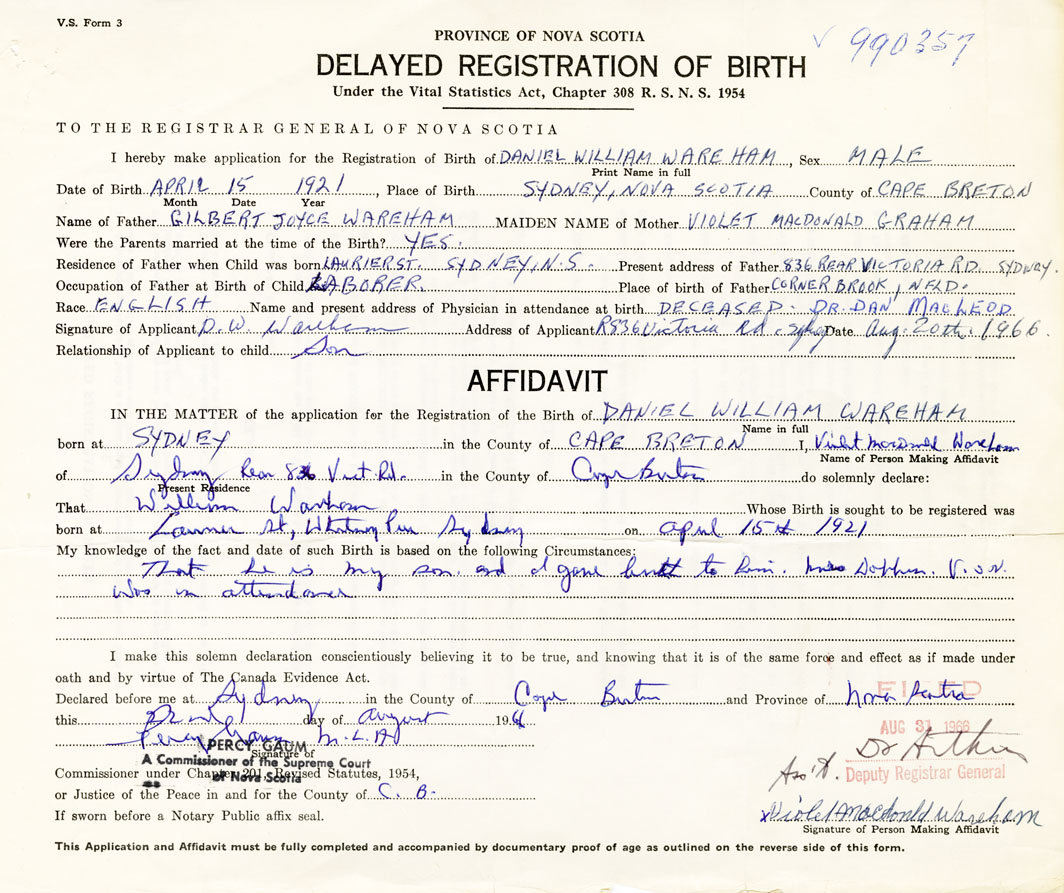 V.S. Form 3
✓ 990357
PROVINCE OF NOVA SCOTIA
DELAYED REGISTRATION OF BIRTH
Under the Vital Statistics Act, Chapter 308 R. S. N. S. 1954
TO THE REGISTRAR GENERAL OF NOVA SCOTIA
I hereby make application for the Registration of Birth of DANIEL WILLIAM WAREHAM, Sex MALE
Print Name in full
Date of Birth APRIL 15 1921, Place of Birth SYDNEY, NOVA SCOTIA County of CAPE BRETON
Month Date Year
Name of Father GILBERT JOYCE WAREHAM MAIDEN NAME of Mother VIOLET MACDONALD GRAHAM
Were the Parents married at the time of the Birth? YES.
Residence of Father when Child was born LAURIER ST. SYDNEY, N.S. Present address of Father 836 REAR VICTORIA RD. SYDNEY.
Occupation of Father at Birth of Child LABORER. Place of birth of Father CORNER BROOK, NFLD.
Race ENGLISH Name and present address of Physician in attendance at birth DECEASED. DR. DAN MACLEOD
Signature of Applicant D. W. Wareham Address of Applicant R836 Victoria Rd. Syd Date Aug. 20th. 1966.
Relationship of Applicant to child Son
AFFIDAVIT
IN THE MATTER of the application for the Registration of the Birth of DANIEL WILLIAM WAREHAM
Name in full
born at SYDNEY in the County of CAPE BRETON I, Violet Macdonald Wareham
Name of Person Making Affidavit
of Sydney Rear 836 Vict Rd. in the County of Cape Breton do solemnly declare:
Present Residence
That William Wareham Whose Birth is sought to be registered was
born at Laurier St, Whitney Pier Sydney on April 15th 1921
My knowledge of the fact and date of such Birth is based on the following Circumstances:
That he is my son. and I gave birth to him. Mrs V.O.N.
was in attendance
I make this solemn declaration conscientiously believing it to be true, and knowing that it is of the same force and effect as if made under
oath and by virtue of The Canada Evidence Act.
Declared before me at Sydney in the County of Cape Breton and Province of Nova Scotia
FILED
this day of August 196
AUG 31 1966
Percy Gaum M.L.A.
PERCY GAUM
Signature of
A Commissioner of the Supreme Court
of Nova Scotia
Commissioner under Chapter 201, Revised Statutes, 1954,
Ass't. Deputy Registrar General
or Justice of the Peace in and for the County of C. B.
If sworn before a Notary Public affix seal.
x Violet Macdonald Wareham
Signature of Person Making Affidavit
This Application and Affidavit must be fully completed and accompanied by documentary proof of age as outlined on the reverse side of this form.